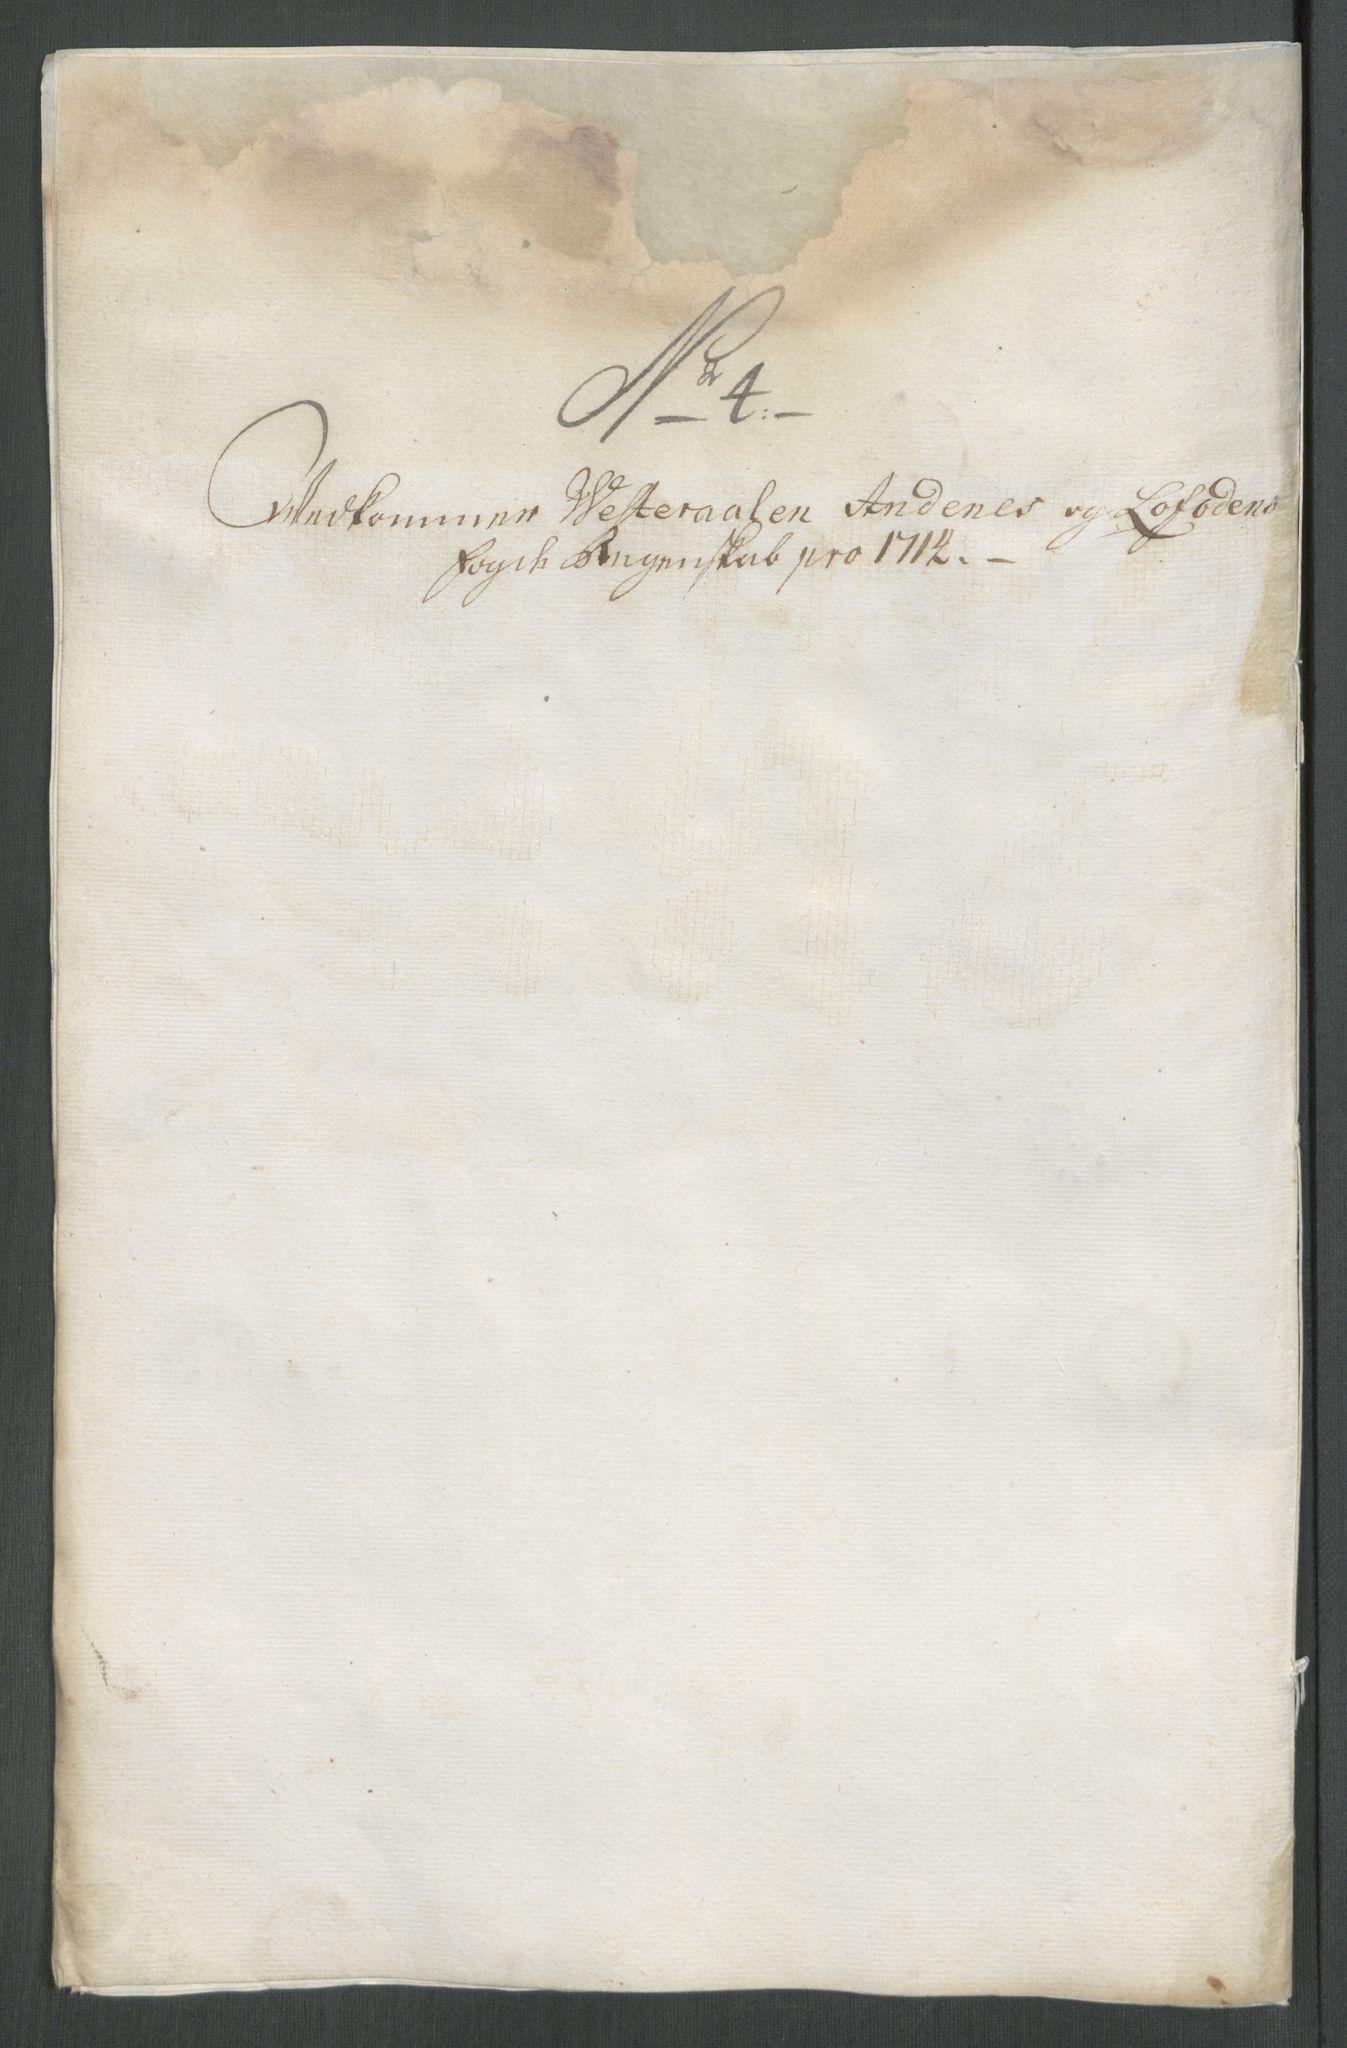 No 4:
Vedkommer Westeraalen Andenes og Lofodens
fogd: Regenskab pro 1714.